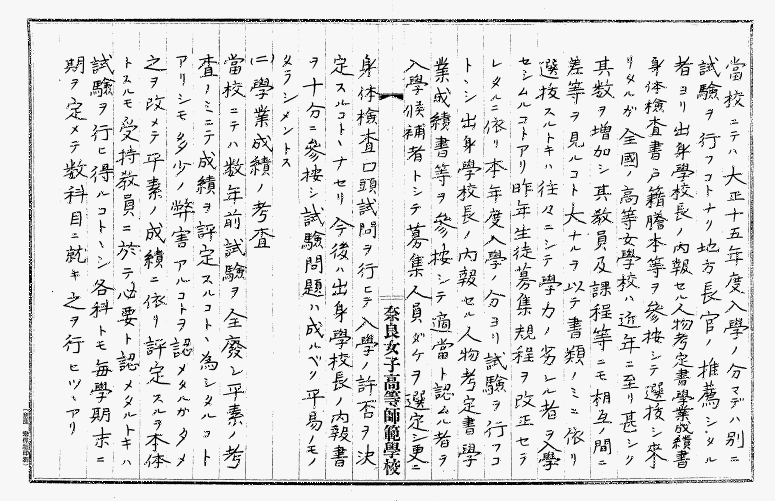 當校ニテハ大正十五年度入學ノ分マデハ別ニ
試驗ヲ行フコトナリ地方長官ノ推薦シタル
者ヨリ出身學校長ノ内報セル人物考定書學業成績書
身体檢査書戸籍謄本等ヲ參按シテ選拔シ來
リタルガ全國ノ高等女學校ハ近年ニ至リ甚シク
其数ヲ増加シ其教員及課程等ニモ相互ノ間ニ
差等ヲ見ルコト大ナルヲ以テ書類ノミニ依リ
選拔スルトキハ往々ニシテ學力ノ劣レル者ヲ入學
セシムルコトアリ昨年生徒募集規程ヲ改正セラ
レタルニ依リ本年度入學ノ分ヨリ試驗ヲ行フコ
トヽシ出身學校長ノ内報セル人物考定書學
業成績書等ヲ參按シテ適當ト認ムル者ヲ
入學候補者トシテ募集人員ダケヲ選定シ更ニ
奈良女子高等師範學校
身体檢査口頭試問ヲ行ヒテ入學ノ許否ヲ決
定スルコトヽナセリ今後ハ出身學校長ノ内報書
ヲ十分ニ參按シ試驗問題ハ成ルベク平易ノモノ
メランメントス
(二)學業成績ノ考査
當校ニテハ数年前試驗ヲ全廢シ平素ノ考
査ノミニテ成績ヲ評定スルコトヽ為シタルコト
アリシモ多少ノ弊害アルコトヲ認メタルガタメ
之ヲ改メテ平素ノ成績ニ依リ評定スルヲ本体
トスルモ受持教員ニ於テ必要ト認メタルトキハ
試驗ヲ行ヒ得ルコトヽシ各科トモ毎學期末ニ
期ヲ定メテ数科目ニ就キ之ヲ行ヒツヽアリ